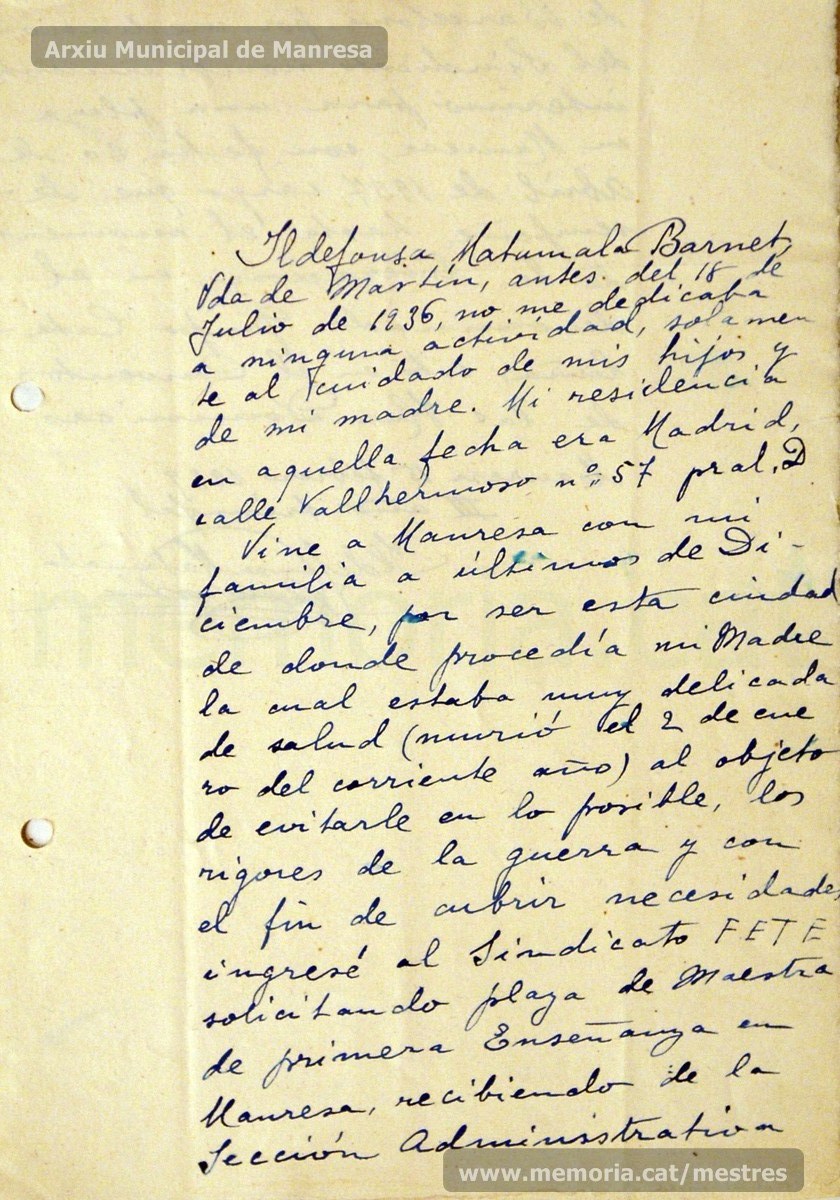 Arxiu Municipal de Manresa
Ildefonsa Matumala Barnet,
Vda de Martín, antes del 18 de
Julio de 1936, no me dedicaba
a ninguna actividad, solamen
te al cuidado de mis hijos y
de mi madre. Mi residencia
en aquella fecha era Madrid,
calle Vallhermoso nº 57 pral. D
Vine a Manresa con mi
familia a últimos de Di-
ciembre, por ser esta ciudad
de donde procedía mi Madre
la cual estaba muy delicada
de salud (murió el 2 de ene
ro del corriente año) al objeto
de evitarle en lo posible, los
rigores de la guerra y con
el fin de cubrir necesidades,
ingresé al Sindicato FETE
solicitando plaza de Maestra
de primera Enseñanza en
Manresa, recibiendo de la
Sección Administrativa
www.memoria.cat/mestres